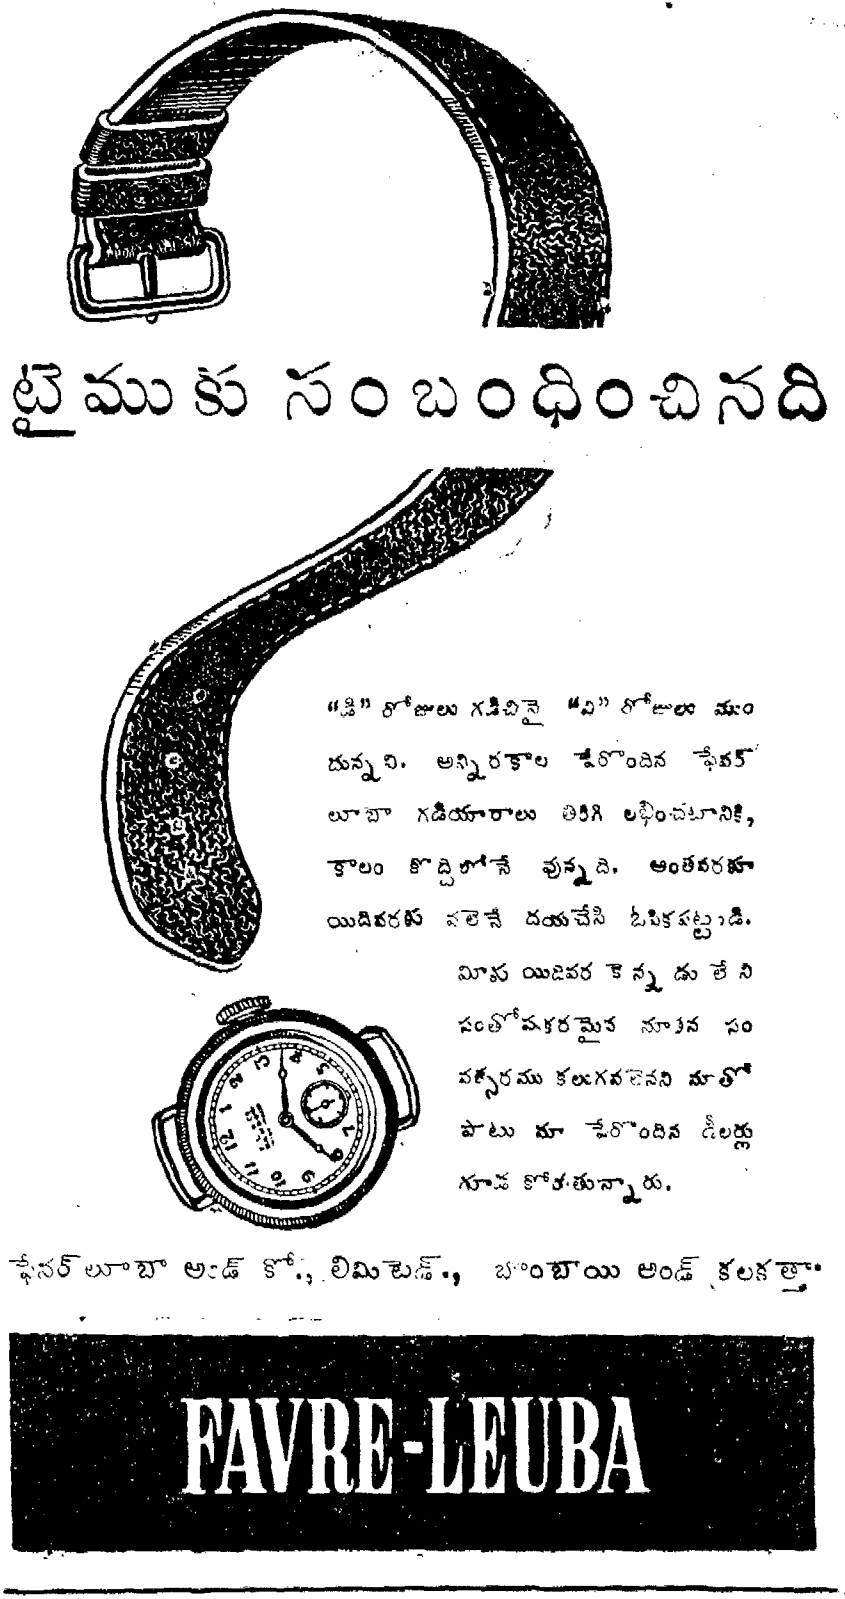 టైముకు సంబంధించినది
“డి” రోజులు గడిచినై “వి” రోజులు ముం
దున్నవి. అన్నిరకాల పేరొందిన ఫేవర్
లూబా గడియారాలు తిరిగి లభించటానికి,
కాలం కొద్దిలోనే వున్నది. అంతవరకూ
యిదివరకు వలెనే దయచేసి ఓపికపట్టుడి.
మీకు యిదివర కెన్నడు లేని
సంతోషకరమైన నూతన సం
వత్సరము కలుగవలెనని మాతో
పాటు మా పేరొందిన డీలర్లు
గూడ కోరుతున్నారు.
ఫేవర్ లూబా అండ్ కో., లిమిటెడ్., బొంబాయి అండ్ కలకత్తా.
FAVRE-LEUBA